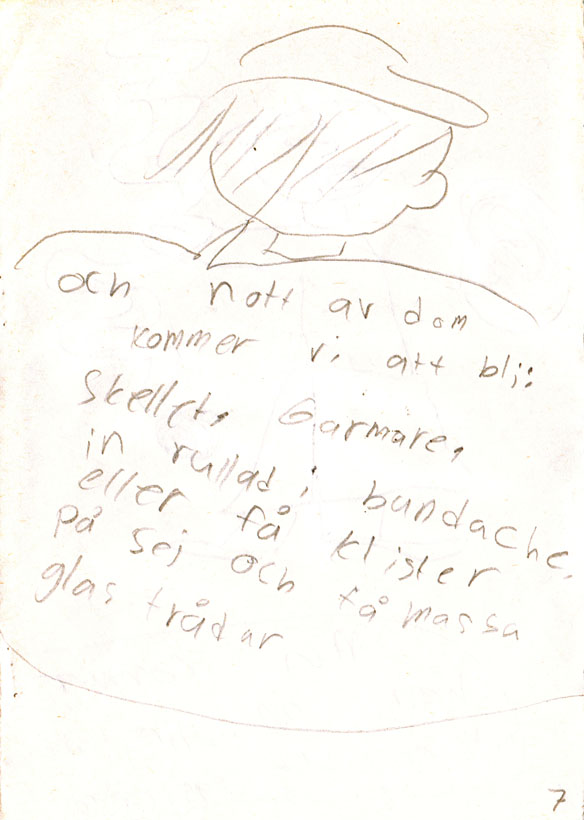 och nott av dom
kommer vi att bli:
Skellet, Garmare,
in rullad i bandache,
eller få klister
på sej och få massa
glas trådar
7